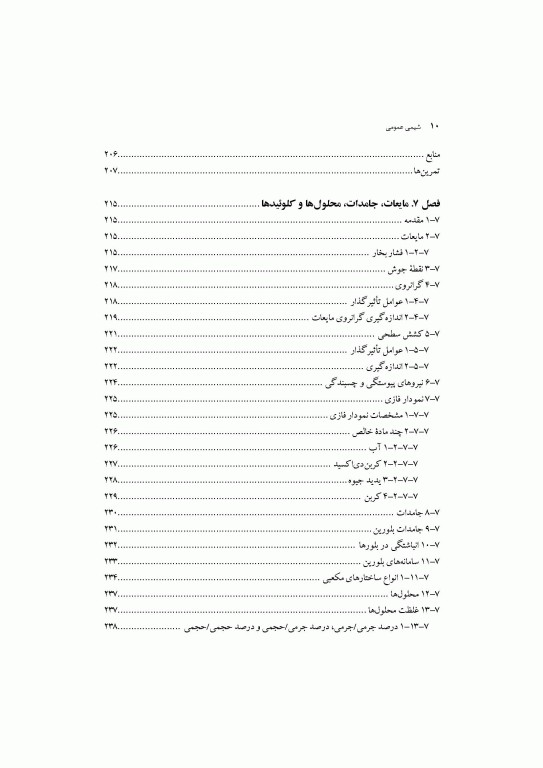 ۱۰ شیمی عمومی
منابع ........ ۲۰۶
تمرین‌ها ........ ۲۰۷
فصل ۷. مایعات، جامدات، محلول‌ها و کلوئیدها ........ ۲۱۵
۷-۱ مقدمه ........ ۲۱۵
۷-۲ مایعات ........ ۲۱۵
۷-۲-۱ فشار بخار ........ ۲۱۵
۷-۳ نقطهٔ جوش ........ ۲۱۷
۷-۴ گرانروی ........ ۲۱۸
۷-۴-۱ عوامل تأثیرگذار ........ ۲۱۸
۷-۴-۲ اندازه‌گیری گرانروی مایعات ........ ۲۱۹
۷-۵ کشش سطحی ........ ۲۲۱
۷-۵-۱ عوامل تأثیرگذار ........ ۲۲۲
۷-۵-۲ اندازه‌گیری ........ ۲۲۲
۷-۶ نیروهای پیوستگی و چسبندگی ........ ۲۲۴
۷-۷ نمودار فازی ........ ۲۲۵
۷-۷-۱ مشخصات نمودار فازی ........ ۲۲۵
۷-۷-۲ چند مادهٔ خالص ........ ۲۲۶
۷-۷-۲-۱ آب ........ ۲۲۶
۷-۷-۲-۲ کربن‌دی‌اکسید ........ ۲۲۷
۷-۷-۲-۳ یدید جیوه ........ ۲۲۸
۷-۷-۲-۴ کربن ........ ۲۲۹
۷-۸ جامدات ........ ۲۳۰
۷-۹ جامدات بلورین ........ ۲۳۱
۷-۱۰ انباشتگی در بلورها ........ ۲۳۲
۷-۱۱ سامانه‌های بلورین ........ ۲۳۳
۷-۱۱-۱ انواع ساختارهای مکعبی ........ ۲۳۴
۷-۱۲ محلول‌ها ........ ۲۳۷
۷-۱۳ غلظت محلول‌ها ........ ۲۳۷
۷-۱۳-۱ درصد جرمی/جرمی، درصد جرمی/حجمی و درصد حجمی/حجمی ........ ۲۳۸